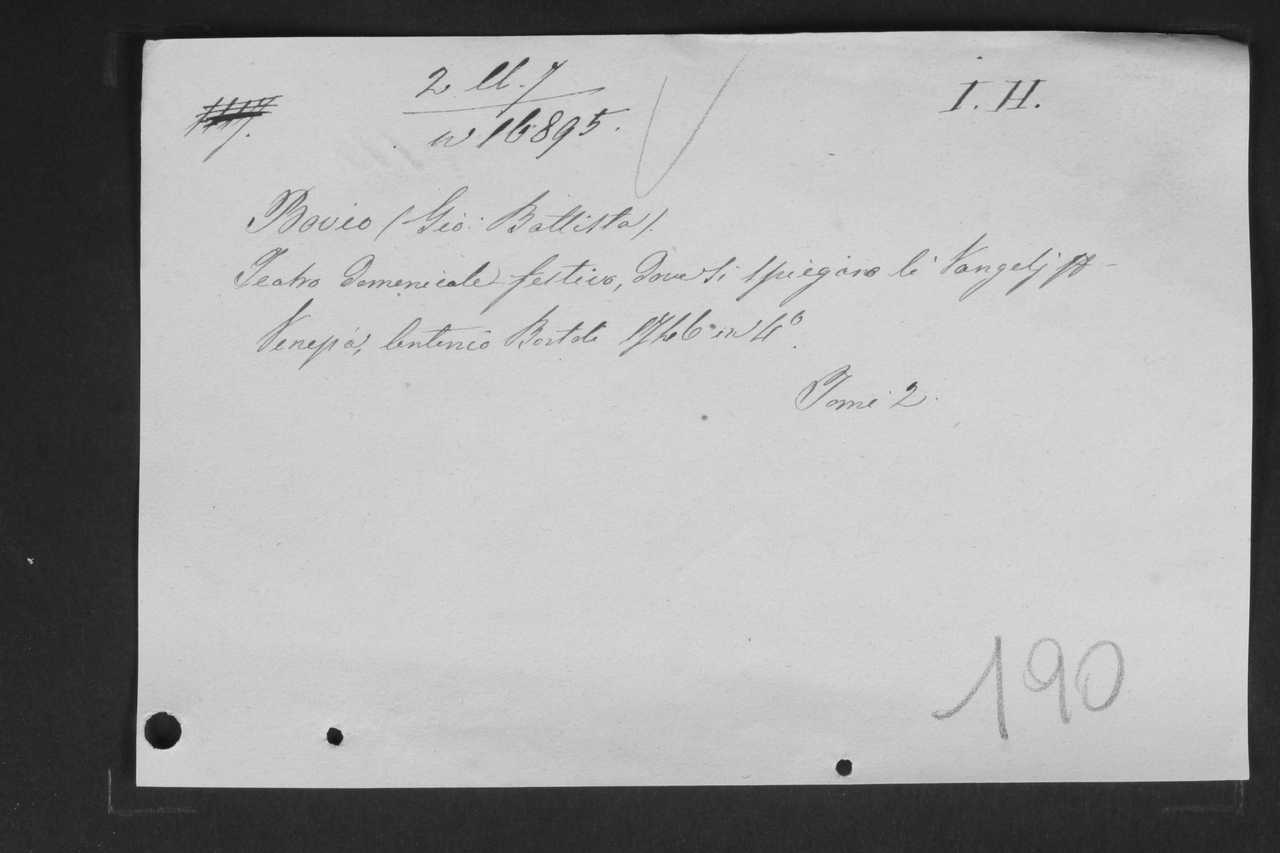 2 ll. 7
I. H.
n 16895.
Bovio (Gio: Battista).
Teatro Domenicale festivo, dove si spiegano li Vangelj
Venezia, Antonio Bortoli 1746 in 4º.
Tomi 2.
190